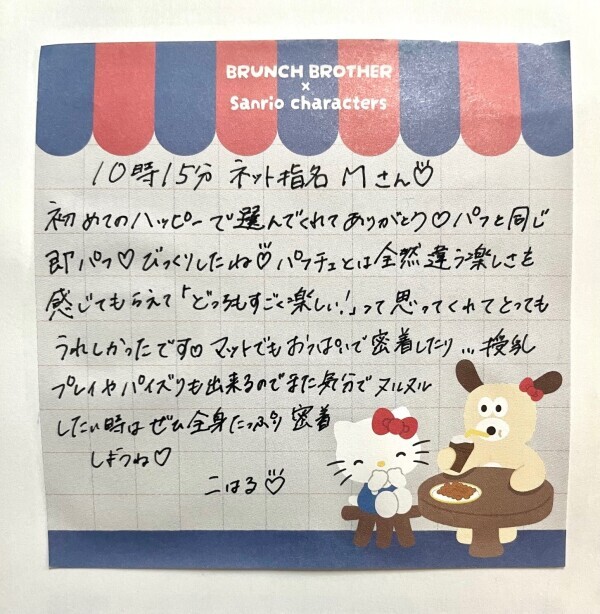 BRUNCH BROTHER
×
Sanrio characters
10時15分 ネット指名 Mさん♡
初めてのハッピーで選んでくれてありがとう♡パフと同じ
即パフ♡びっくりしたね♡パフチェとは全然違う楽しさを
感じてもらえて「どっちもすごく楽しい!」って思ってくれてとっても
うれしかったです♡マットでもおっぱいで密着したり…授乳
プレイやパイズリも出来るのでまた気分でヌルヌル
したい時はぜひ全身たっぷり密着
しようね♡
こはる♡